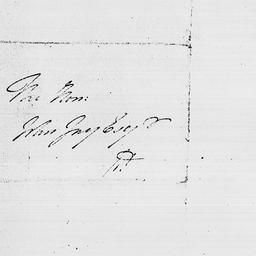 The Hon.
John Jay Esqr